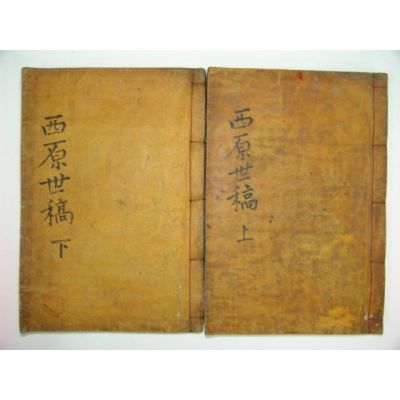 西原世稿 上
西原世稿 下